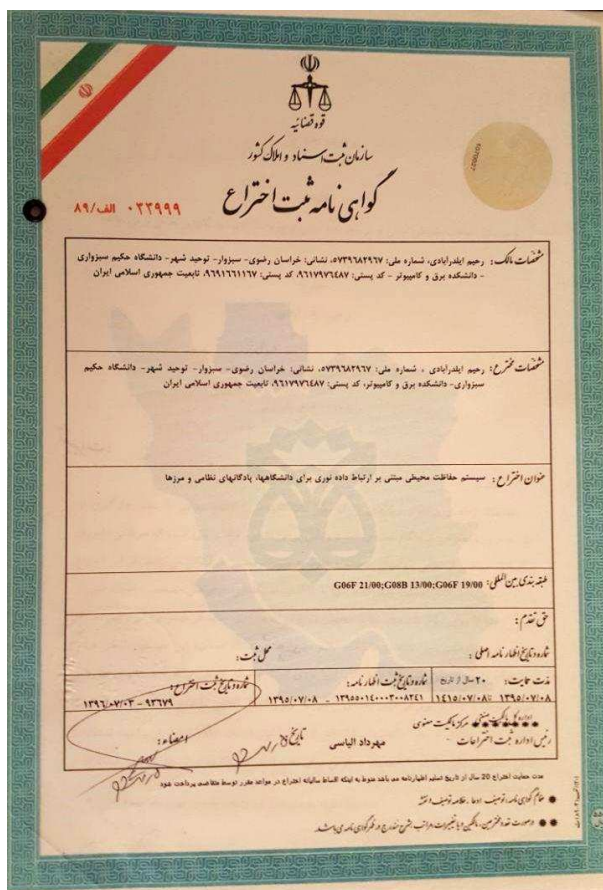 قوه قضائیه
سازمان ثبت اسناد و املاک کشور
گواهی نامه ثبت اختراع
۰۳۳۹۹۹ الف/۸۹
مشخصات مالک: رحیم ایلدرآبادی، شماره ملی: ۵۷۳۹۶۸۲۹۶۷، نشانی: خراسان رضوی- سبزوار- توحید شهر- دانشگاه حکیم سبزواری
- دانشکده برق و کامپیوتر - کد پستی: ۹۶۱۷۹۷۶۴۸۷، کد پستی: ۹۶۹۱۶۶۱۱۶۷، تابعیت جمهوری اسلامی ایران
مشخصات مخترع: رحیم ایلدرآبادی ، شماره ملی: ۵۷۳۹۶۸۲۹۶۷، نشانی: خراسان رضوی- سبزوار- توحید شهر- دانشگاه حکیم
سبزواری- دانشکده برق و کامپیوتر، کد پستی: ۹۶۱۷۹۷۶۴۸۷، تابعیت جمهوری اسلامی ایران
عنوان اختراع: سیستم حفاظت محیطی مبتنی بر ارتباط داده نوری برای دانشگاهها، پادگانهای نظامی و مرزها
طبقه بندی بین المللی: G06F 21/00;G08B 13/00;G06F 19/00
حق تقدم:
شماره و تاریخ اظهارنامه اصلی: محل ثبت:
مدت حمایت: ۲۰ سال از تاریخ شماره و تاریخ ثبت اظهارنامه: شماره و تاریخ ثبت اختراع:
۱۳۹۵/۰۷/۰۸ ۱۴۱۵/۰۷/۰۸ ۱۳۹۵۵۰۱۴۰۰۰۳۰۰۸۲۴۱ - ۱۳۹۵/۰۷/۰۸ ۹۳۶۷۹ - ۱۳۹۶/۰۷/۰۳
اداره کل مالکیت صنعتی مرکز مالکیت معنوی
رئیس اداره ثبت اختراعات - مهرداد الیاسی تاریخ امضاء:
مدت حمایت اختراع 20 سال از تاریخ تسلیم اظهارنامه می باشد منوط به اینکه اقساط سالیانه اختراع در مواعد مقرر توسط متقاضی پرداخت شود
ضمائم گواهی نامه: توصیف، ادعا، خلاصه توصیف و نقشه
درصورت تعدد مخترعین، مالکین و یا تغییرات، مراتب بشرح مندرج در ظهر گواهی نامه می باشد